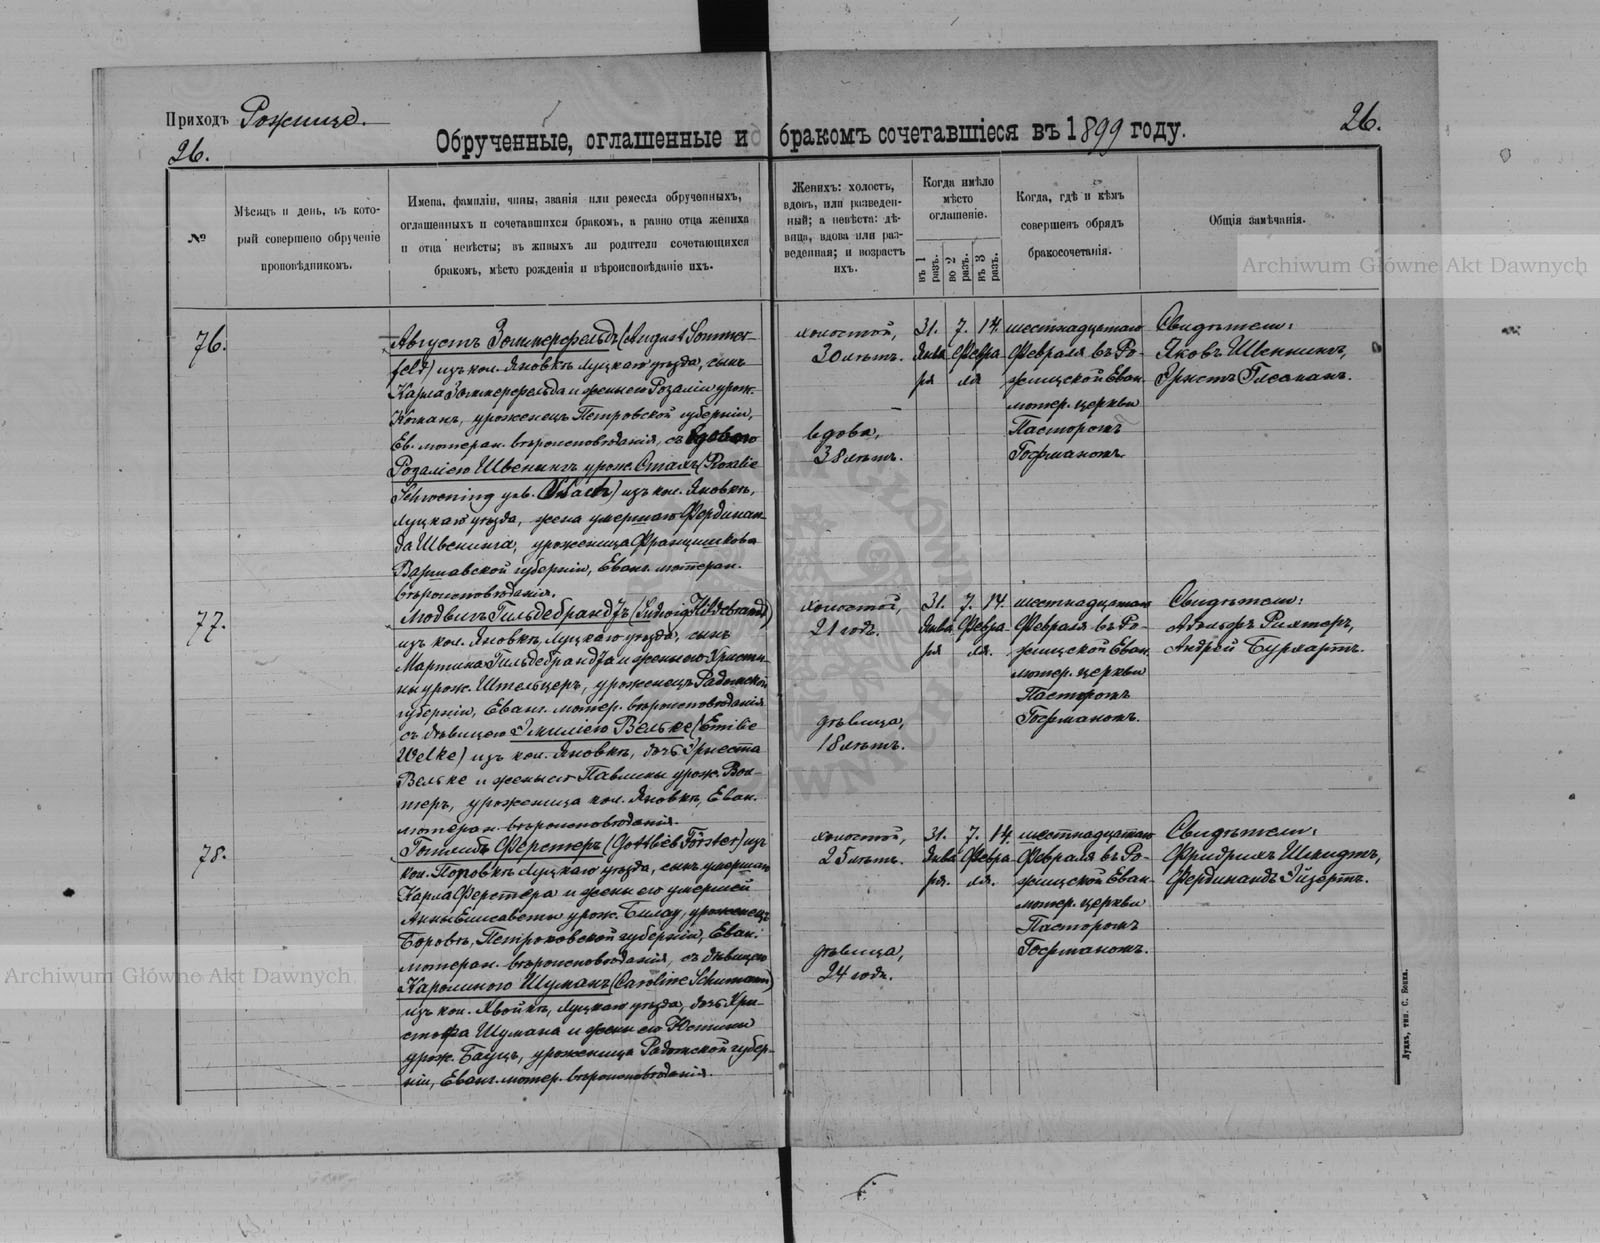 Приходъ Рожище.
26.
Обрученные, оглашенные и бракомъ сочетавшіеся въ 1899 году.
26.
№
Мѣсяцъ и день, въ кото-
рый совершено обрученіе
проповѣдникомъ.
Имена, фамиліи, чины, званія или ремесла обрученныхъ,
оглашенныхъ и сочетавшихся бракомъ, а равно отца жениха
и отца невѣсты; въ живыхъ ли родители сочетающихся
бракомъ, мѣсто рожденія и вѣроисповѣданіе ихъ.
Женихъ: холостъ,
вдовъ, или разведен-
ный; а невѣста: дѣ-
вица, вдова или раз-
веденная; и возрастъ
ихъ.
Когда имѣло
мѣсто
оглашеніе.
въ 1 разъ.
во 2 разъ.
въ 3 разъ.
Когда, гдѣ и кѣмъ
совершенъ обрядъ
бракосочетанія.
Общія замѣчанія.
76.
Августъ Зоммерфельдъ (August Sommer-
feld) изъ кол. Яновкѣ Луцкаго уѣзда, сынъ
Карла Зоммерфельда и жены его Розаліи урож.
уроженецъ Петровской губерніи,
Ев. лютеран. вѣроисповѣданія, съ вдовою
Розаліею Швенингъ урож. Сталь (Rosalie
Schwoening geb. ) изъ кол. Яновкѣ,
Луцкаго уѣзда, жена умершаго Фердинан-
да Швенинга, уроженица Францишкова
Варшавской губерніи, Еванг. лютеран.
вѣроисповѣданія.
холостой,
30 лѣтъ.
вдова,
38 лѣтъ.
31. 7. 14.
Янва Февра
ря ля
шестнадцатаго
Февраля въ Ро-
жищской Еван.
лютер. церкви
Пасторомъ
Гофманомъ.
Свидѣтели:
Яковъ Швеннинъ,
Эрнстъ Глесманъ.
77.
Людвигъ Гильдебрандтъ (Ludwig Hildebrandt)
изъ кол. Яновкѣ, Луцкаго уѣзда, сынъ
Мартина Гильдебрандта и жены его Христи-
ны урож. Штельцеръ, уроженецъ Радомской
губерніи, Еванг. лютер. вѣроисповѣданія
съ дѣвицею Эмиліею Вельке (Emilie
Welke) изъ кол. Яновкѣ, дочь Эрнеста
Вельке и жены его Павлины урож. Вол-
теръ, уроженица кол. Яновкѣ, Еван.
лютеран. вѣроисповѣданія.
холостой,
21 годъ.
дѣвица,
18 лѣтъ.
31. 7. 14.
Янва Февра
ря ля.
шестнадцатаго
Февраля въ Ро-
жищской Еван.
лютер. церкви
Пасторомъ
Гофманомъ.
Свидѣтели:
Адольфъ Рихтеръ,
Андрей Бурхартъ.
78.
Готлибъ Ферстеръ (Gottlieb Förster) изъ
кол. Топовкѣ Луцкаго уѣзда, сынъ умершаго
Карла Ферстера и жены его умершей
Анны Елисаветы урож. Билау, уроженецъ
Боровкѣ, Петроковской губерніи, Еван.
лютеран. вѣроисповѣданія, съ дѣвицею
Каролиною Шуманъ (Caroline Schumann)
изъ кол. Хвойкѣ, Луцкаго уѣзда, дочь Хри-
стофа Шумана и жены его Юстины
урож. Бауцъ, уроженица Радомской губер-
ніи, Еванг. лютер. вѣроисповѣданія.
холостой,
25 лѣтъ.
дѣвица,
24 годъ.
31. 7. 14.
Янва Февра
ря. ля.
шестнадцатаго
Февраля въ Ро-
жищской Еван.
лютер. церкви
Пасторомъ
Гофманомъ.
Свидѣтели:
Фридрихъ Шмидтъ,
Фердинандъ Эйзертъ.
Луцкъ, тип. С. Бокка.
Archiwum Główne Akt Dawnych
Archiwum Główne Akt Dawnych